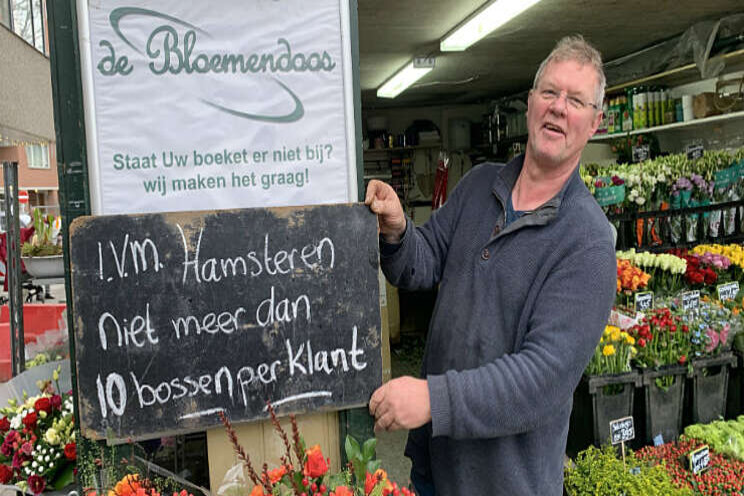 de Bloemendoos
Staat Uw boeket er niet bij?
wij maken het graag!
I.V.m. Hamsteren
niet meer dan
10 bossen per Klant